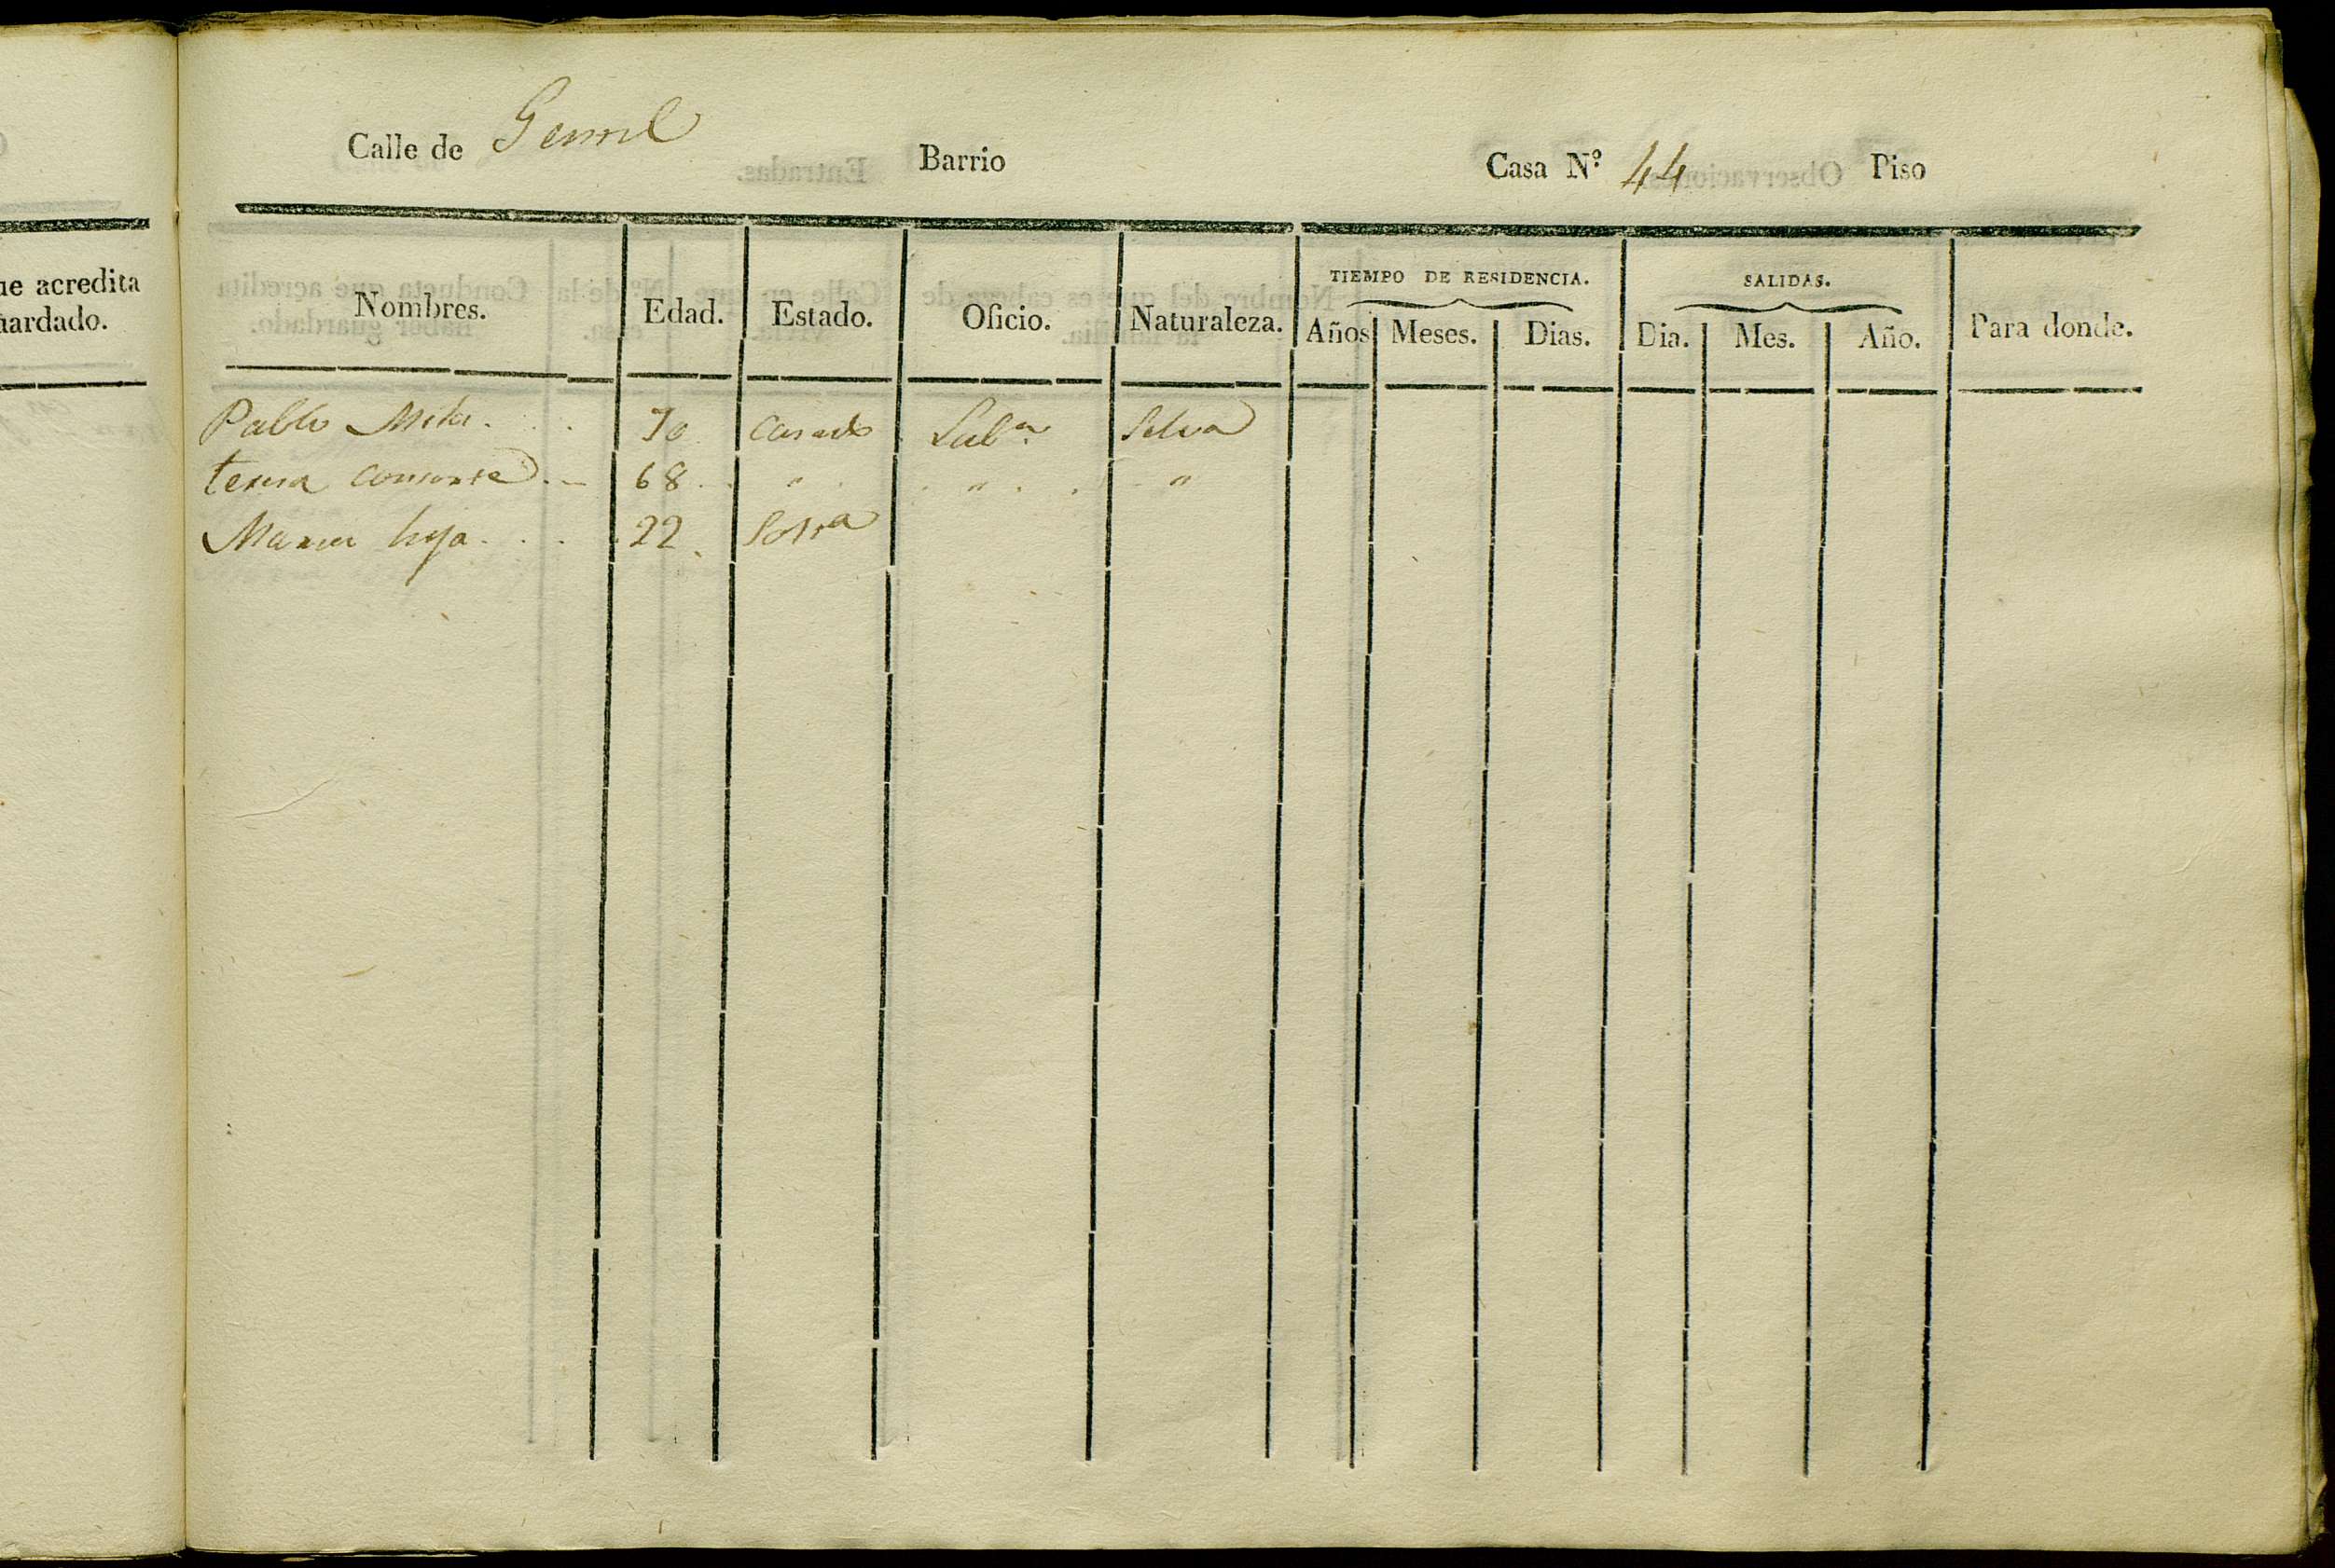 Calle de
Barrio
Casa Nº 44 Piso
ue acredita
uardado.
Nombres. Edad. Estado. Oficio. Naturaleza. TIEMPO DE RESIDENCIA. SALIDAS. Para donde.
Años Meses. Dias. Dia. Mes. Año.
Pablo 70 Casado Labr Selva
Consorte 68 " " "
Maria hija 22 Soltra